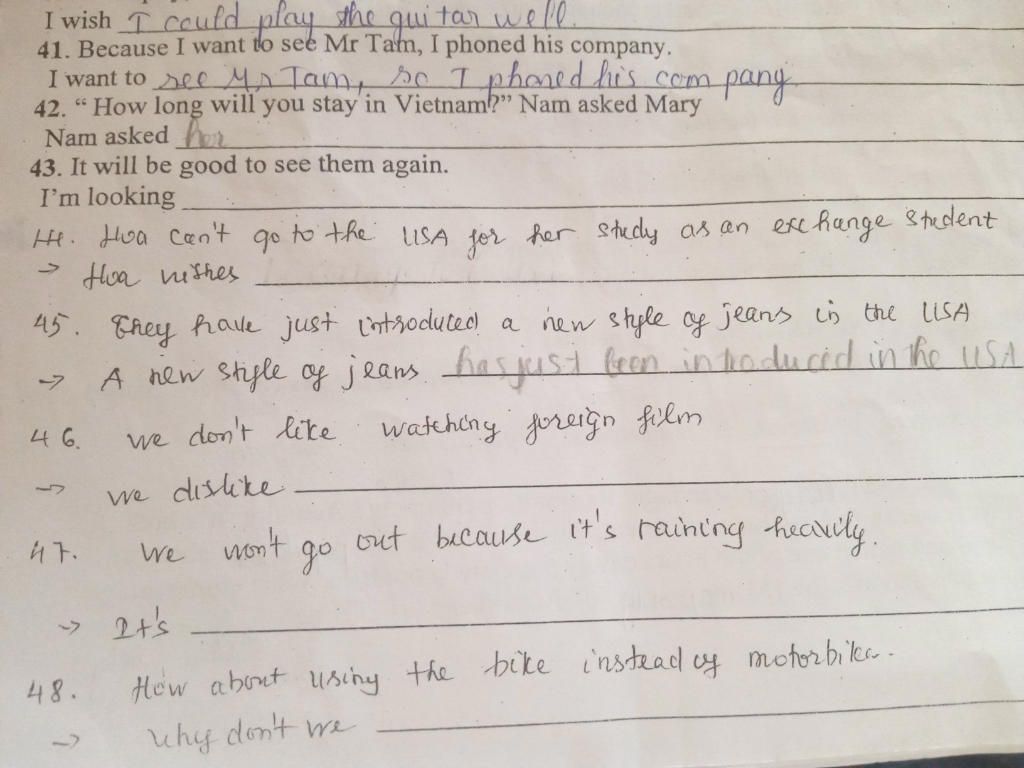 I wish I could play the guitar well.
41. Because I want to see Mr Tam, I phoned his company.
I want to see Mr Tam, so I phoned his com pang
42. “ How long will you stay in Vietnam?” Nam asked Mary
Nam asked her
43. It will be good to see them again.
I'm looking
44. Hoa can't go to the USA for her study as an exchange student
→ Hoa wishes
45. They have just introduced a new style of jeans in the USA
→ A new style of jeans has just been introduced in the USA
46. we don't like watching foreign film
→ we dislike
47. we won't go out because it's raining heavily.
→ It's
48. How about using the bike instead of motorbike.
→ why don't we